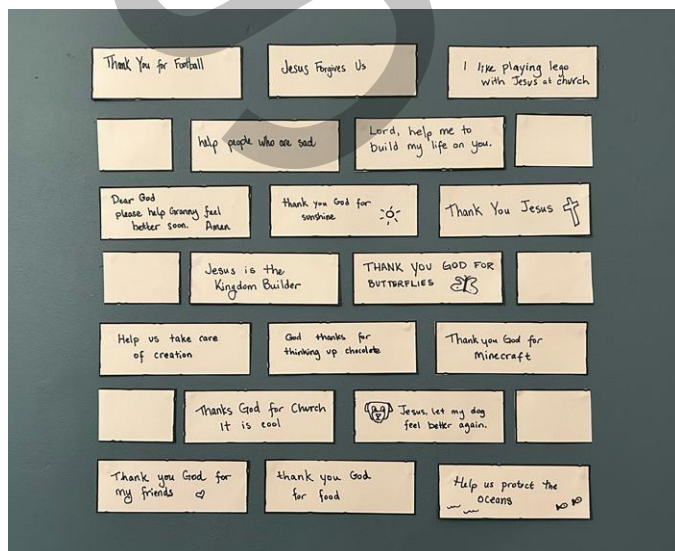 Thank You for Football
Jesus Forgives Us
I like playing lego
with Jesus at church
help people who are sad
Lord, help me to
build my life on you.
Dear God
please help Granny feel
better soon. Amen
thank you God for
sunshine
Thank You Jesus
Jesus is the
Kingdom Builder
THANK YOU GOD FOR
BUTTERFLIES
Help us take care
of creation
God thanks for
thinking up chocolate
Thank you God for
Minecraft
Thanks God for Church
It is cool
Jesus, let my dog
feel better again.
Thank you God for
my friends
thank you God
for food
Help us protect the
oceans